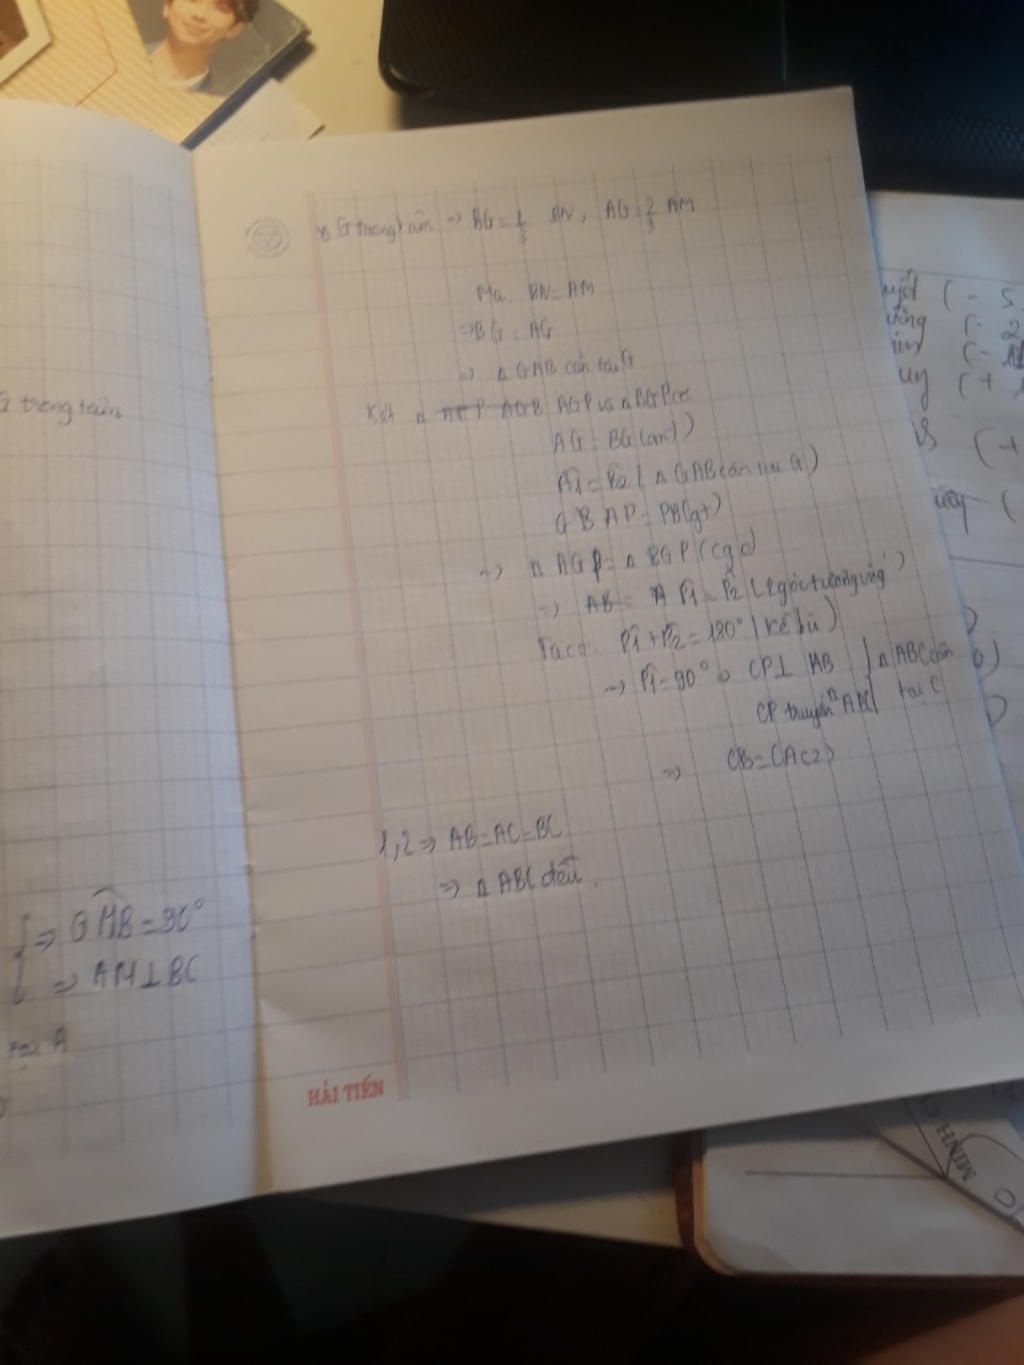 G trọng tâm
⇒ GMB = 90°
⇒ AM ⊥ BC
tại A
G trọng tâm ⇒ BG = 2/3 BN, AG = 2/3 AM
Mà BN = AM
⇒ BG = AG
⇒ Δ GAB cân tại G
Xét Δ AGP và Δ BGP có
AG = BG (cmt)
A1 = B2 ( Δ GAB cân tại G )
AP = PB (gt)
⇒ Δ AGP = Δ BGP (cgc)
⇒ P1 = P2 ( 2 góc tương ứng )
Ta có: P1 + P2 = 180° ( kề bù )
⇒ P1 = 90° ⇒ CP ⊥ AB } Δ ABC cân
CP tuyến Δ ABC } tại C
⇒ CB = CA (2)
1, 2 ⇒ AB = AC = BC
⇒ Δ ABC đều.
HẢI TIẾN
( - 5
( - 2
uy ( +
( +
(
MINH